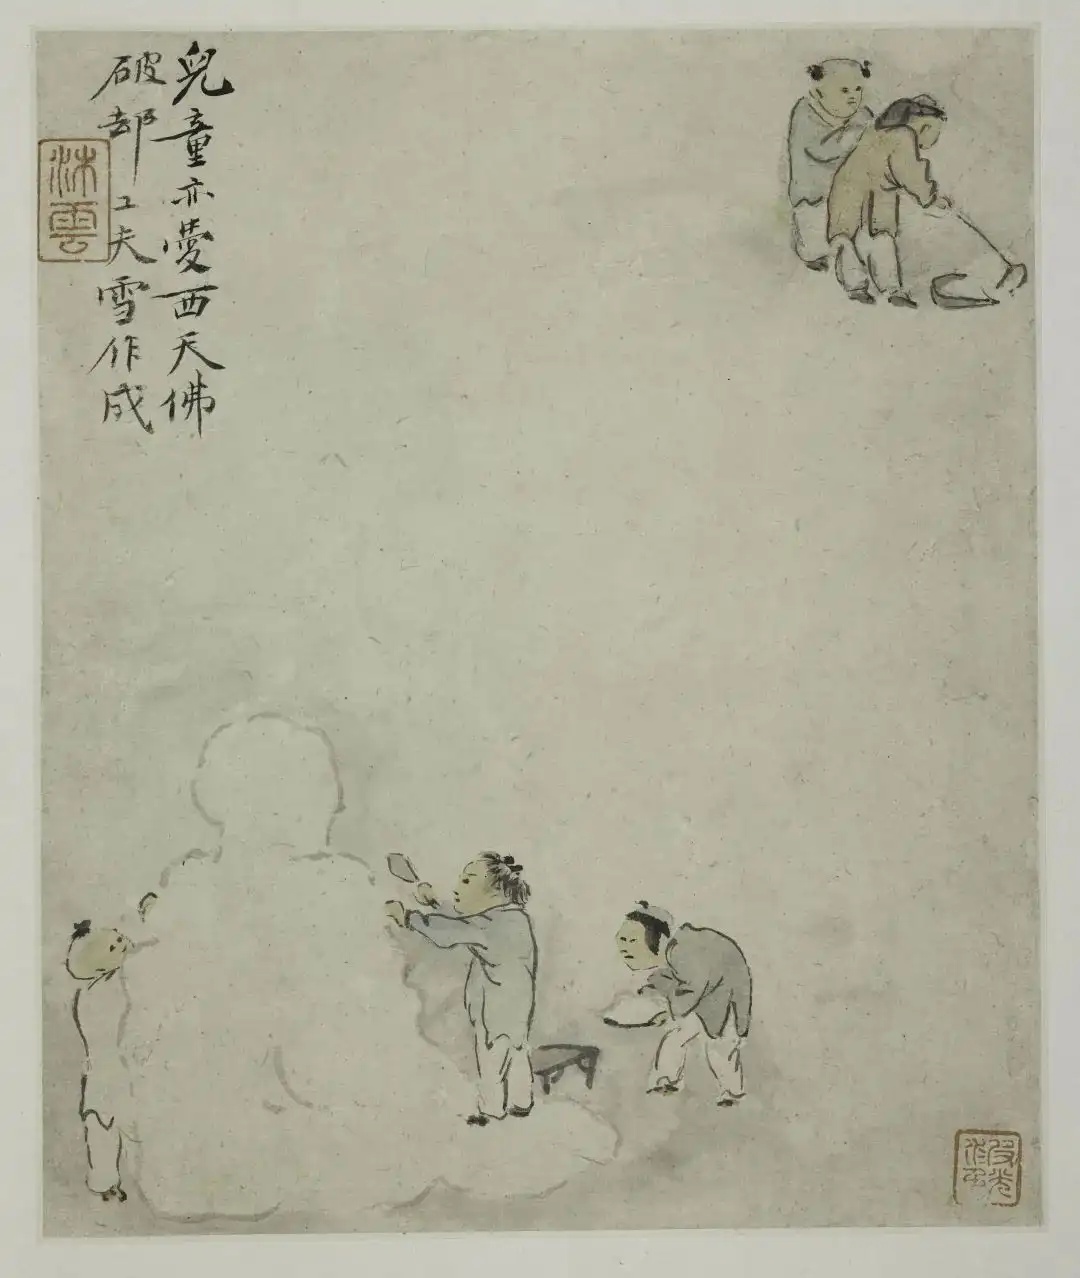 兒童亦愛西天佛
破却工夫雪作成
沐雲